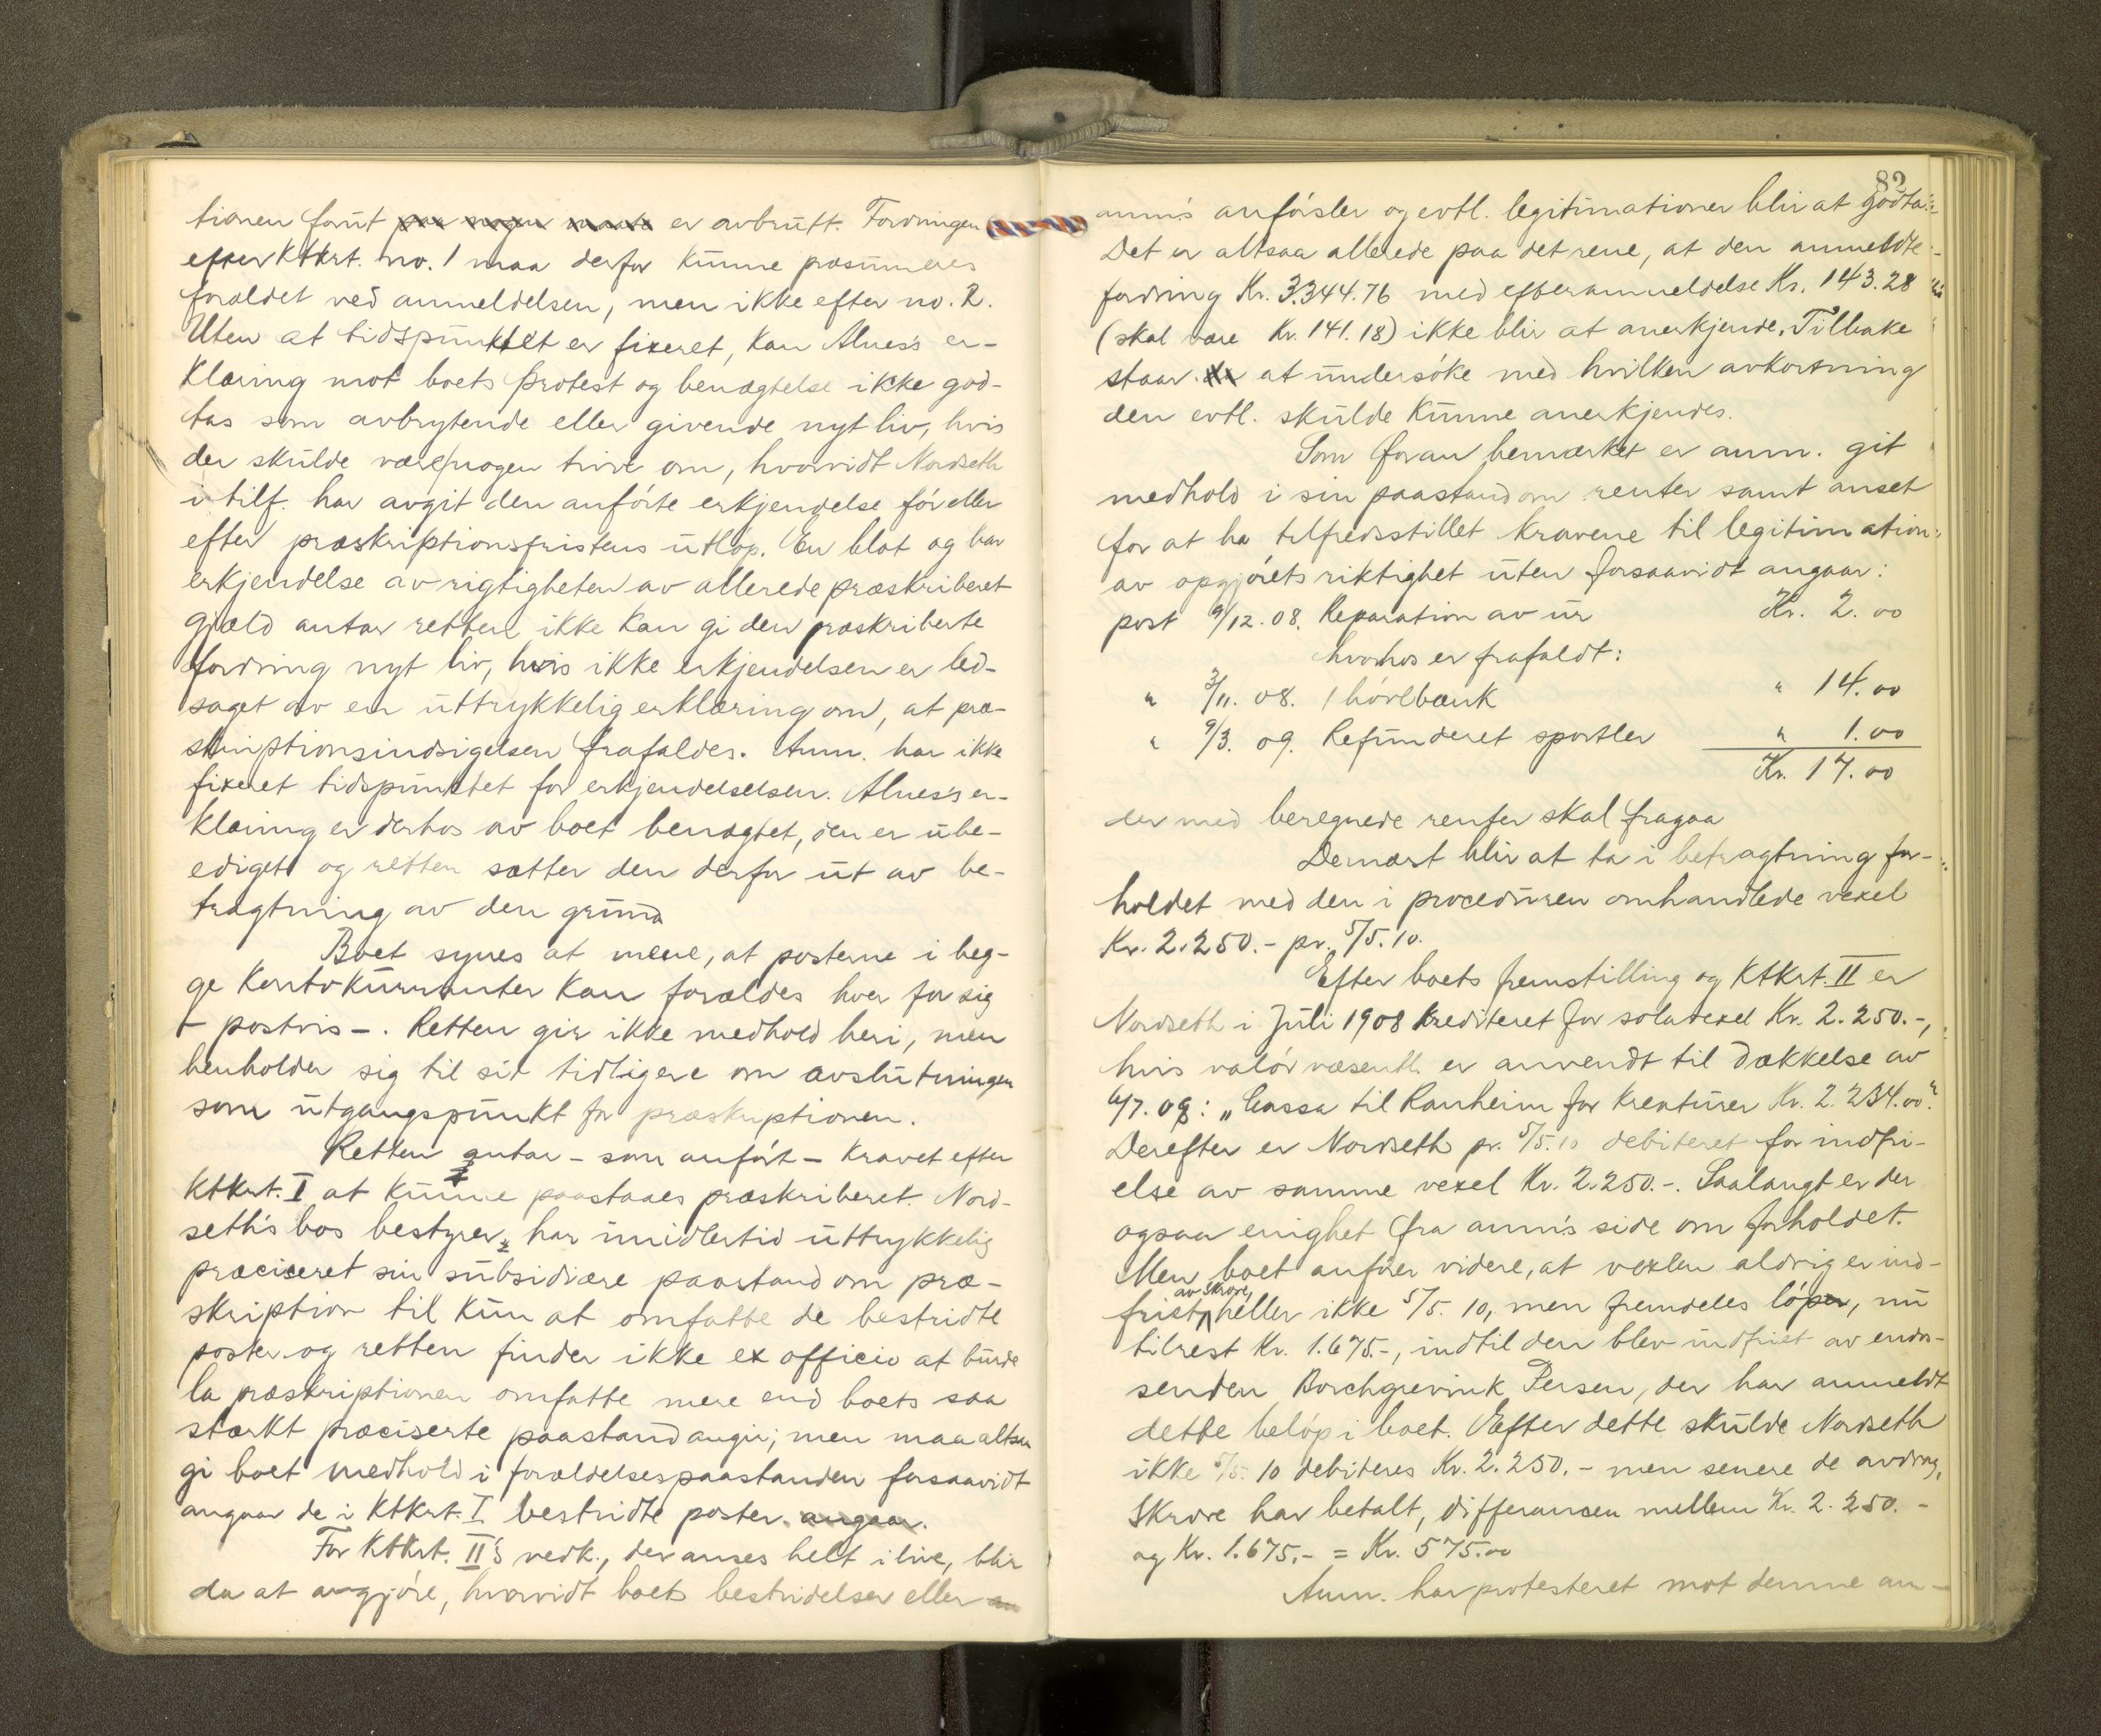 tionen forut paa nogen maate er avbrutt. Fordringen
efter Ktkrt. no. 1 maa derfor kunne præsumeres
forældet ved anmeldelsen, men ikke efter no. 2.
Uten at tidspunktet er fixeret, kan Alnes's er-
klæring mot boets protest og benægtelse ikke god-
tas som avbrytende eller givende nyt liv, hvis
der skulde være nogen tvivl om, hvorvidt Nordseth
i tilf. har avgit den anførte erkjendelse før eller
efter præskriptionsfristens utløp. En blot og bar
erkjendelse av rigtigheten av allerede præskriberet
gjæld antar retten ikke kan gi den præskriberte
fordring nyt liv, hvis ikke erkjendelsen er led-
saget av en uttrykkelig erklæring om, at præ-
skriptionsindsigelsen frafaldes. Anm. har ikke
fixeret tidspunktet for erkjendelselsen. Alnes's er-
klæring er derhos av boet benægtet, den er ube-
ediget og retten sætter den derfor ut av be-
tragtning av den grund
Boet synes at mene, at posterne i beg-
ge Kontokurranter kan forældes hver for sig
- postvis -. Retten gir ikke medhold heri, men
henholder sig til sit tidligere om avslutningen
som utgangspunkt for præskriptionen.
Retten antar - som anført - kravet efter
Ktkrt. I at kunne paastaaes præskriberet. Nord-
seth's bos bestyrer har imidlertid uttrykkelig
præciseret sin subsidiære paastand om præ-
skription til kun at omfatte de bestridte
poster og retten finder ikke ex officio at burde
la præskriptionen omfatte mere end boets saa
stærkt præciserte paastand angir; men maa altsaa
gi boet medhold i forældelsespaastanden forsaavidt
angaar de i Ktkrt. I bestridte poster. angaar.
For Ktkrt. II's vedk., der anses helt i live, blir
da at avgjøre, hvorvidt boets bestridelser eller an
82
anm's anførsler og evtl. legitimationer blir at godta:
Det er altsaa allerede paa det rene, at den anmeldte
fordring Kr. 3.344.76 med efteranmeldelse Kr. 143.28
(skal være Kr. 141.18) ikke blir at anerkjende. Tilbake
staar at undersøke med hvilken avkortning
den evtl. skulde kunne anerkjendes.
Som foran bemærket er anm. git
medhold i sin paastand om renter samt anset
for at ha tilfredsstillet kravene til legitimation
av opgjørets riktighet uten forsaavidt angaar:
post 9/12. 08. Reparation av ur Kr. 2.00
hvorhos er frafaldt:
" 3/11. 08. 1 høvlbænk " 14.00
" 9/3. 09. Refunderet sportler " 1.00
Kr. 17.00
der med beregnede renter skal fragaa
Dernæst blir at ta i betragtning for-
holdet med den i proceduren omhandlede vexel
Kr. 2.250.- pr. 5/5.10.
Efter boets fremstilling og Ktkrt. II er
Nordseth i Juli 1908 krediteret for solavexel Kr. 2.250.-,
hvis valør væsentl. er anvendt til dækkelse av
6/7. 08: „Cassa til Ranheim for kreaturer Kr. 2.234.00"
Derefter er Nordseth pr. 5/5.10 debiteret for indfri-
else av samme vexel Kr. 2.250.-. Saalangt er der
ogsaa enighet fra anm's side om forholdet.
Men boet anfører videre, at vexlen aldrig er ind-
av Skrove,
friet, heller ikke 5/5. 10, men fremdeles løper, nu
tilrest Kr. 1.675.-, indtil den blev indfriet av endos-
senden Borchgrevink Persen, der har anmeldt
dette beløp i boet. Efter dette skulde Nordseth
ikke 5/5. 10 debiteres Kr. 2.250.- men senere de avdrag,
Skrove har betalt, differancen mellem Kr. 2.250.-
og Kr. 1.675.- = Kr. 575.00
Anm. har protesteret mot denne an-